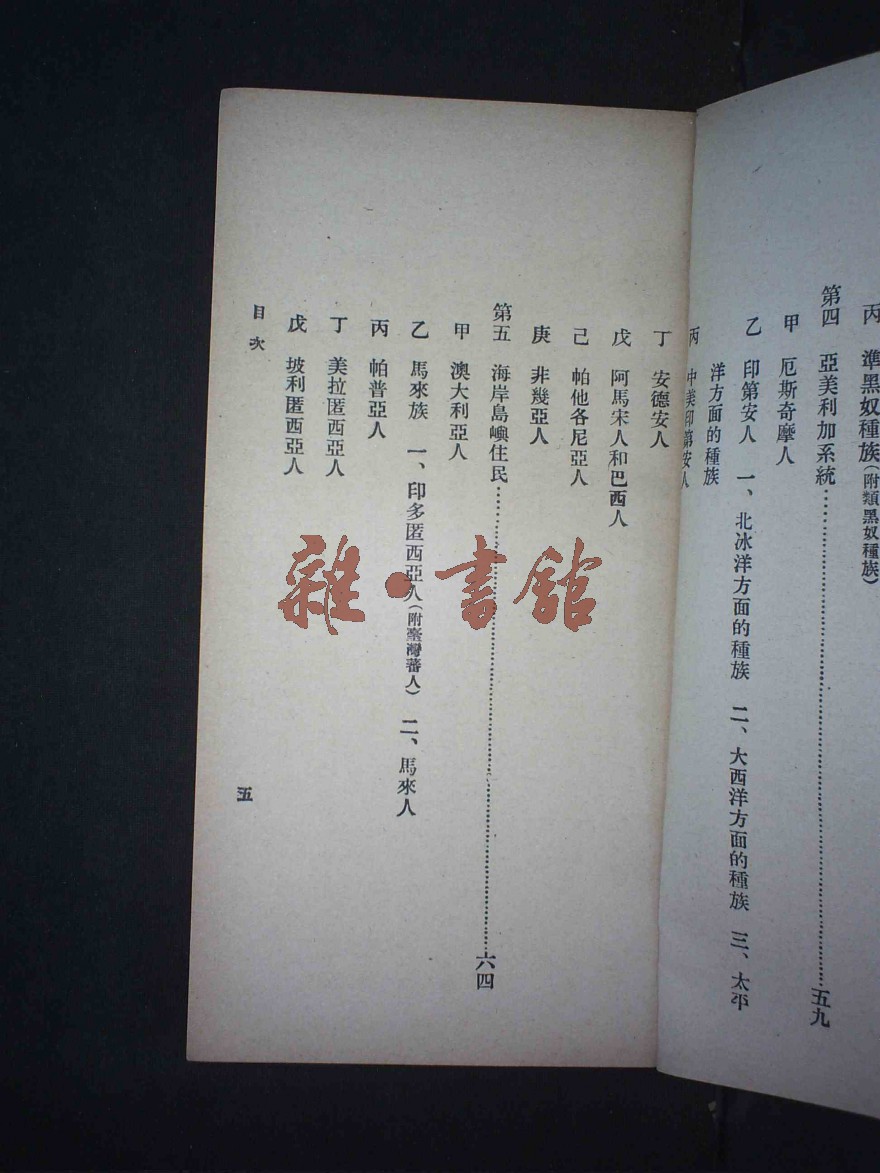 丙　準黑奴種族（附類黑奴種族）
第四　亞美利加系統……五九
甲　厄斯奇摩人
乙　印第安人　一、北冰洋方面的種族　二、大西洋方面的種族　三、太平
洋方面的種族
丙　中美印第安人
丁　安德安人
戊　阿馬宋人和巴西人
己　帕他各尼亞人
庚　非幾亞人
第五　海岸島嶼住民……六四
甲　澳大利亞人
乙　馬來族　一、印多匿西亞人（附臺灣蕃人）　二、馬來人
丙　帕普亞人
丁　美拉匿西亞人
戊　坡利匿西亞人
目次
五
雜·書館